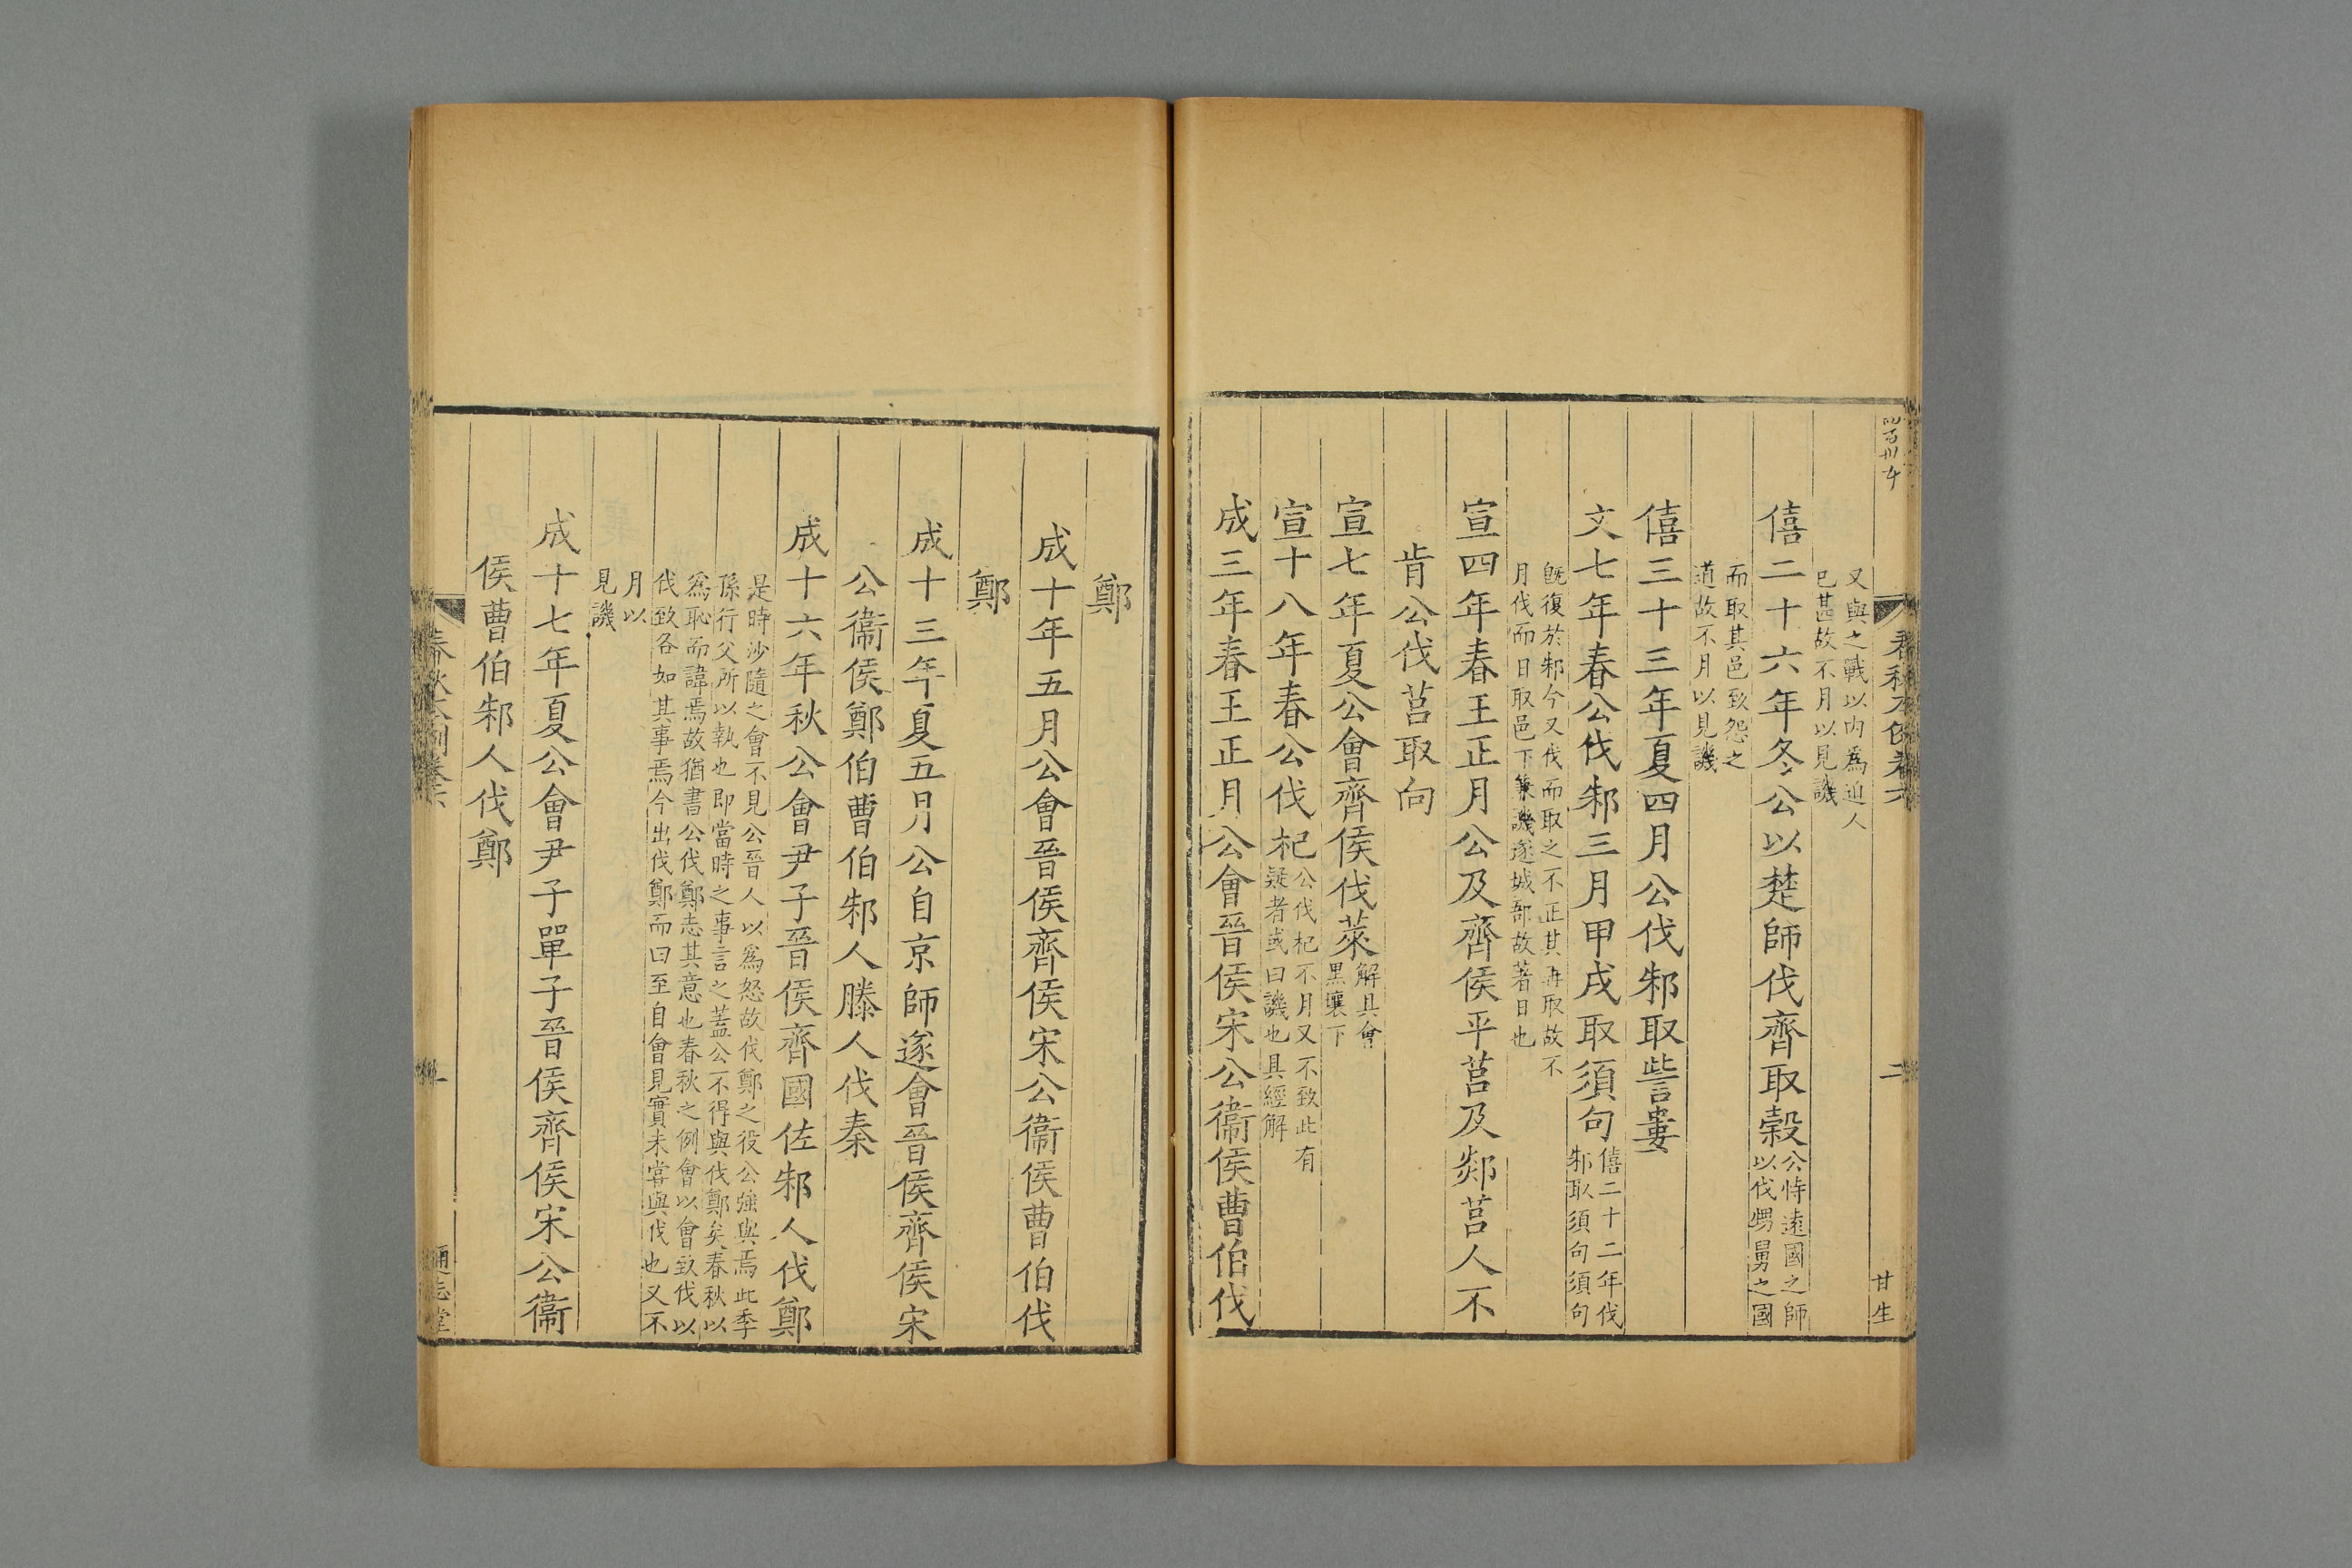 又與之戰以内爲迫人
已甚故不月以見譏
僖二十六年冬公以楚師伐齊取穀公恃遠國之師
以伐甥舅之國
而取其邑致怨之
道故不月以見譏
僖三十三年夏四月公伐邾取訾婁
文七年春公伐邾三月甲戌取須句僖二十二年伐
邾取須句須句
既復於邾今又伐而取之不正其再取故不
月伐而日取邑下兼譏遂城郚故著日也
宣四年春王正月公及齊侯平莒及郯莒人不
肯公伐莒取向
宣七年夏公會齊侯伐萊解具會
黑壤下
宣十八年春公伐杞公伐杞不月又不致此有
疑者或曰譏也具經解
成三年春王正月公會晉侯宋公衞侯曹伯伐
鄭
成十年五月公會晉侯齊侯宋公衞侯曹伯伐
鄭
成十三年夏五月公自京師遂會晉侯齊侯宋
公衞侯鄭伯曹伯邾人滕人伐秦
成十六年秋公會尹子晉侯齊國佐邾人伐鄭
是時沙隨之會不見公晉人以爲怒故伐鄭之役公強與焉此季
孫行父所以執也即當時之事言之蓋公不得與伐鄭矣春秋以
爲恥而諱焉故猶書公伐鄭志其意也春秋之例會以會致伐以
伐致各如其事焉今出伐鄭而曰至自會見實未嘗與伐也又不
月以
見譏
成十七年夏公會尹子單子晉侯齊侯宋公衞
侯曹伯邾人伐鄭
二
甘生
通志堂